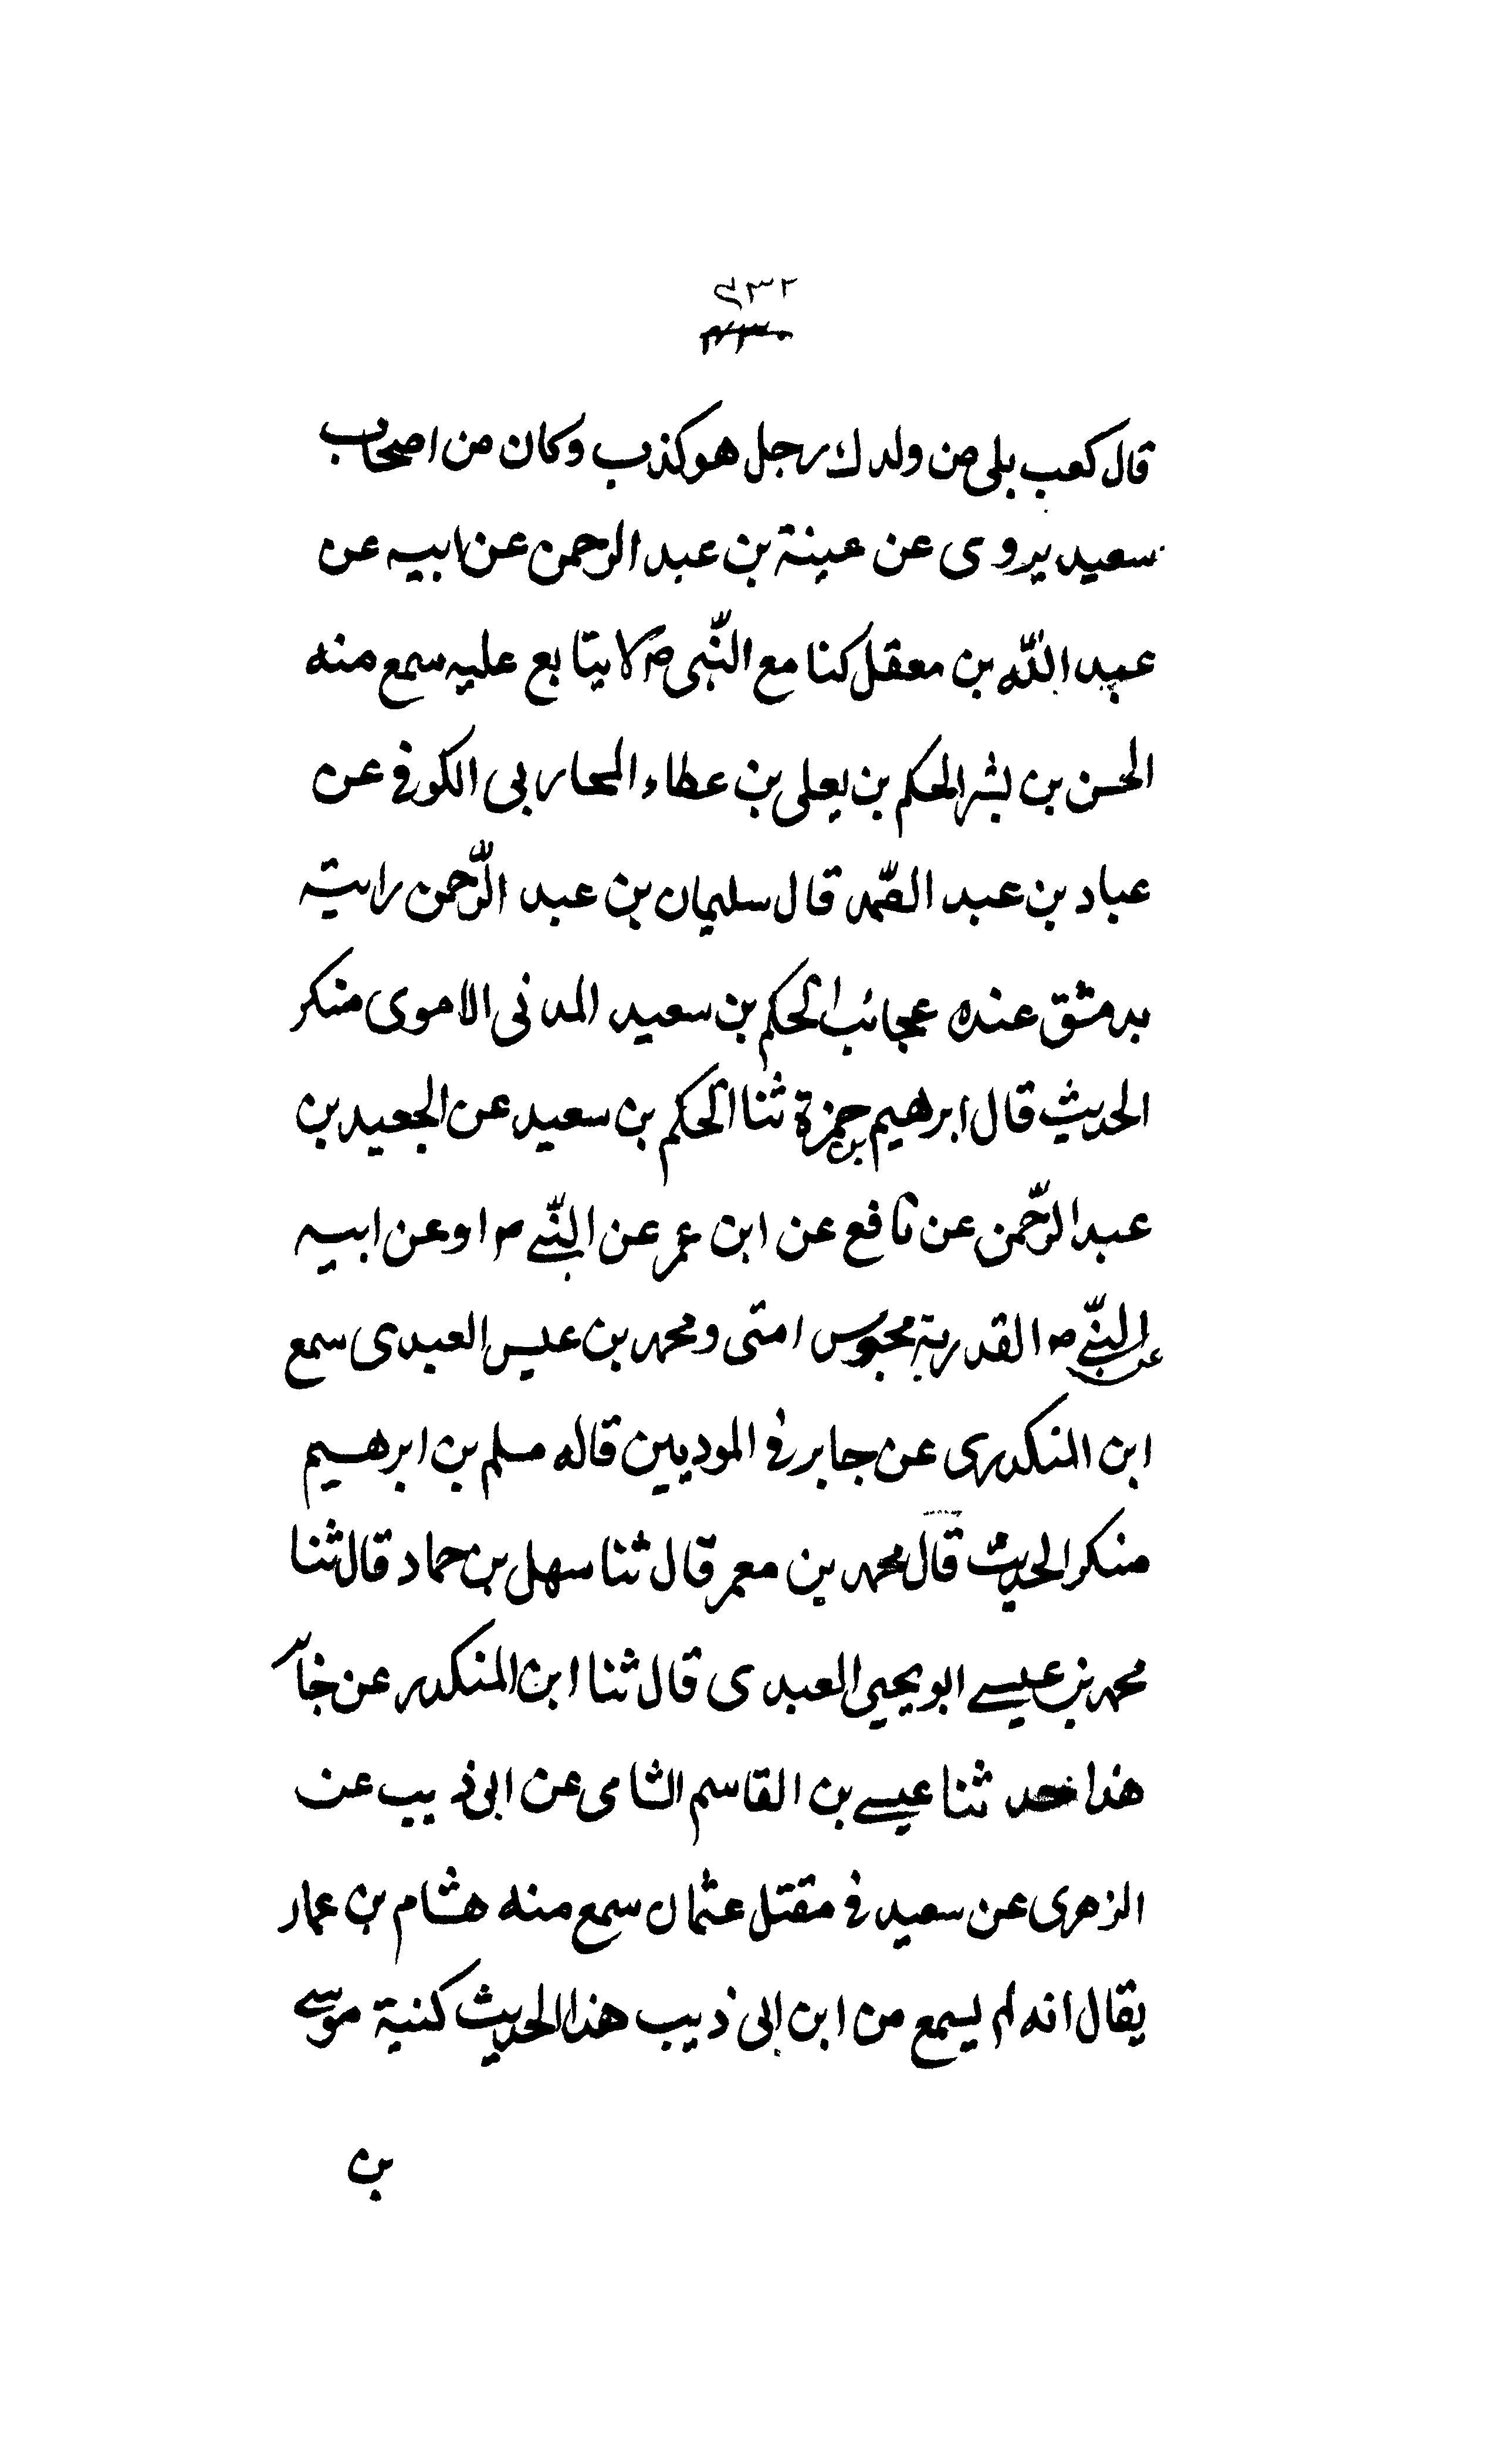 ٢٣٩
قال كعب بلى من ولدك رجل هو كذب وكان من اصحاب
سعيد يروى عن عينة بن عبد الرحمن عن ابيه عن
عبد الله بن معقل كنا مع النّبى ص لا يتابع عليه سمع منه
الحسن بن بشر الحكم بن يعلى بن عطاء المحاربى الكوفى عن
عباد بن عبد الصّمد قال سليمان بن عبد الرّحمن رايته
بدمشق عنده عجائب الحكم بن سعيد المدنى الاموى منكر
الحديث قال ابرهيم بن حمزة ثنا الحكم بن سعيد عن الجعيد بن
عبد الرّحمن عن نافع عن ابن عمر عن النّبى ص او عن ابيه
عن النّبى ص القدرية مجوس امتى ومحمد بن عيسى العبدى سمع
ابن المنكدرى عن جابر فى الموديين قاله مسلم بن ابرهيم
منكر الحديث قال محمد بن معمر قال ثنا سهل بن حماد قال ثنا
محمد بن عيسى ابو يحيى العبدى قال ثنا ابن المنكدر عن جابر
هذا حد ثنا عيسى بن القاسم الشامى عن ابى ذيب عن
الزهرى عن سعيد فى مقتل عثمان سمع منه هشام بن عمار
يقال انه لم يسمع من ابن ابى ذيب هذا الحديث كنية موسى
بن